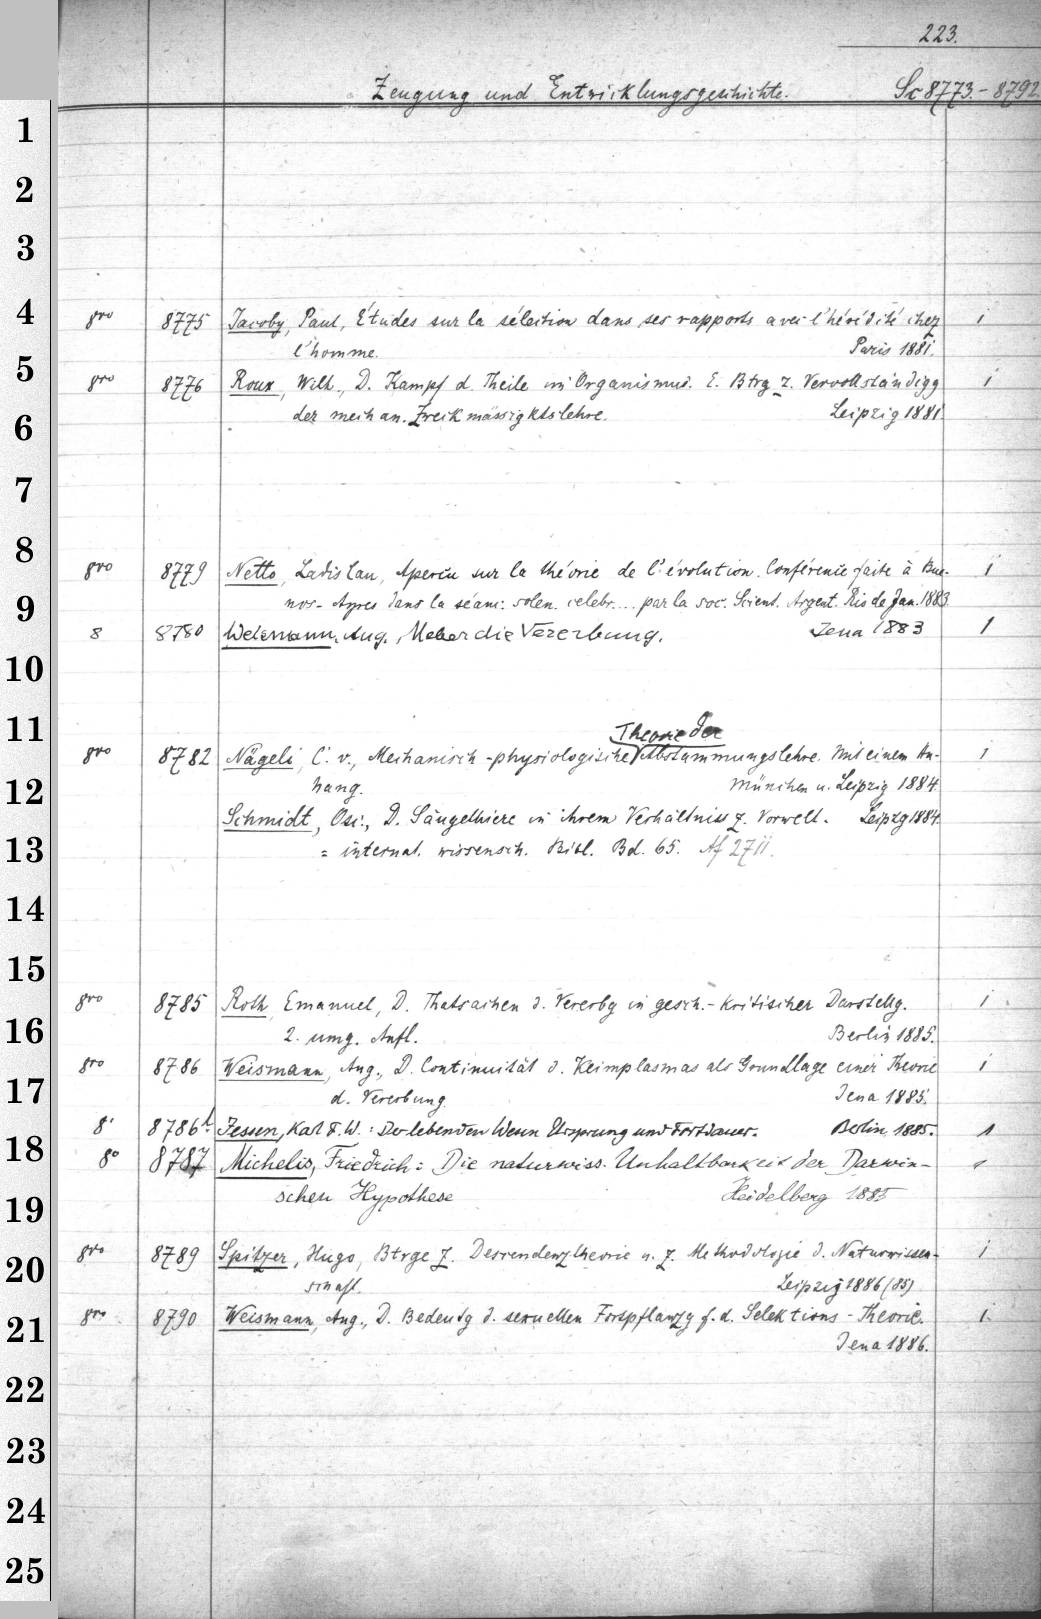 223.
Zeugung und Entwicklungsgeschichte. Sc 8773.-8792
1
2
3
4
8vo 8775 Jacoby, Paul, Études sur la sélection dans ses rapports avec l'hérédité chez 1
l'homme. Paris 1881.
5
8vo 8776 Roux, Wilh., D. Kampf d. Theile im Organismus. E. Btrg z. Vervollständigg 1
der mechan. Zweckmässigktslehre. Leipzig 1881
6
7
8
8vo 8779 Netto, Ladislau, Aperçu sur la théorie de l'évolution. Conférence faite à Bue- 1
nos-Ayres dans la séanc. solen. celebr... par la soc. Scient. Argent. Rio de Jan. 1883
9
8 8780 Weismann, Aug., Ueber die Vererbung. Jena 1883 1
10
11
Theorie der
8vo 8782 Nägeli, C. v., Mechanisch-physiologische Abstammungslehre. Mit einem An- 1
12
hang. München u. Leipzig 1884.
Schmidt, Osc., D. Säugethiere in ihrem Verhältniss z. Vorwelt. Leipzg 1884.
13
= internat. wissensch. Bibl. Bd. 65. Af 2711.
14
15
8vo 8785 Roth, Emanuel, D. Thatsachen d. Vererbg in gesch.-kritischer Darstellg. 1
16
2. umg. Aufl. Berlin 1885.
8vo 8786 Weismann, Aug., D. Continuität d. Keimplasmas als Grundlage einer Theorie 1
17
d. Vererbung. Jena 1885.
8° 8786b. Jessen, Karl F. W.: Der lebenden Wesen Ursprung und Fortdauer. Berlin 1885. 1
18
8° 8787 Michelis, Friedrich: Die naturwiss. Unhaltbarkeit der Darwin- 1
schen Hypothese Heidelberg 1885
19
20
8vo 8789 Spitzer, Hugo, Btrge z. Descendenztheorie u. z. Methodologie d. Naturwissen- 1
schaft. Leipzig 1886 (85)
21
8vo 8790 Weismann, Aug., D. Bedeutg d. sexuellen Fortpflanzg f. d. Selektions-Theorie. 1
Jena 1886.
22
23
24
25